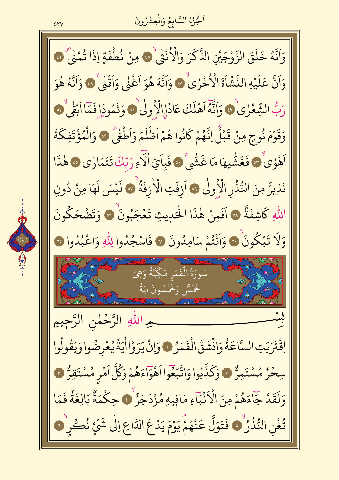 اَلْجُزْءُ السَّابِعُ وَالْعِشْرُونَ
وَاَنَّهُ خَلَقَ الزَّوْجَيْنِ الذَّكَرَ وَالْاُنْثٰىۙ مِنْ نُطْفَةٍ اِذَا تُمْنٰىۖ
وَاَنَّ عَلَيْهِ النَّشْاَةَ الْاُخْرٰىۙ وَاَنَّهُ هُوَ اَغْنٰى وَاَقْنٰىۙ وَاَنَّهُ هُوَ
رَبُّ الشِّعْرٰىۙ وَاَنَّهُٓ اَهْلَكَ عَادًاۨ الْاُو۫لٰىۙ وَثَمُودَا۬ فَمَٓا اَبْقٰىۙ
وَقَوْمَ نُوحٍ مِنْ قَبْلُۜ اِنَّهُمْ كَانُوا هُمْ اَظْلَمَ وَاَطْغٰىۜ وَالْمُؤْتَفِكَةَ
اَهْوٰىۙ فَغَشّٰيهَا مَا غَشّٰىۚ فَبِاَيِّ اٰلَٓاءِ رَبِّكَ تَتَمَارٰى هٰذَا
نَذِيرٌ مِنَ النُّذُرِ الْاُو۫لٰى اَزِفَتِ الْاٰزِفَةُۚ لَيْسَ لَهَا مِنْ دُونِ
اللّٰهِ كَاشِفَةٌۜ اَفَمِنْ هٰذَا الْحَدِيثِ تَعْجَبُونَۙ وَتَضْحَكُونَ
وَلَا تَبْكُونَۙ وَاَنْتُمْ سَامِدُونَ فَاسْجُدُوا لِلّٰهِ وَاعْبُدُوا
سُورَةُ الْقَمَرِ مَكِّيَّةٌ وَهِيَ
خَمْسٌ وَخَمْسُونَ اٰيَةً
بِسْمِ اللّٰهِ الرَّحْمٰنِ الرَّحِيمِ
اِقْتَرَبَتِ السَّاعَةُ وَانْشَقَّ الْقَمَرُ وَاِنْ يَرَوْا اٰيَةً يُعْرِضُوا وَيَقُولُوا
سِحْرٌ مُسْتَمِرٌّ وَكَذَّبُوا وَاتَّبَعُٓوا اَهْوَٓاءَهُمْ وَكُلُّ اَمْرٍ مُسْتَقِرٌّ
وَلَقَدْ جَٓاءَهُمْ مِنَ الْاَنْبَٓاءِ مَا فِيهِ مُزْدَجَرٌۙ حِكْمَةٌ بَالِغَةٌ فَمَا
تُغْنِ النُّذُرُۙ فَتَوَلَّ عَنْهُمْۢ يَوْمَ يَدْعُ الدَّاعِ اِلٰى شَيْءٍ نُكُرٍۙ